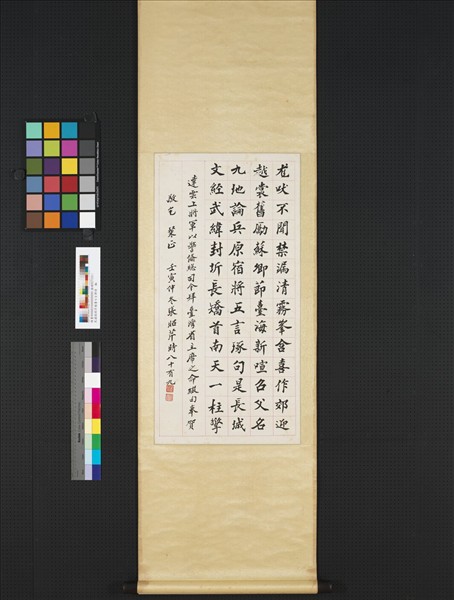 尨吠不聞禁漏清霧峯含喜作郊迎
越裳舊勵蘇卿節臺海新喧召父名
九地論兵原宿將五言琢句是長城
文經武緯封圻長矯首南天一柱擎
達雲上將軍以學條總司令拜臺灣省主席之命賦句奉賀
敬乞 粲正 壬寅仲冬張昭芹時八十有九